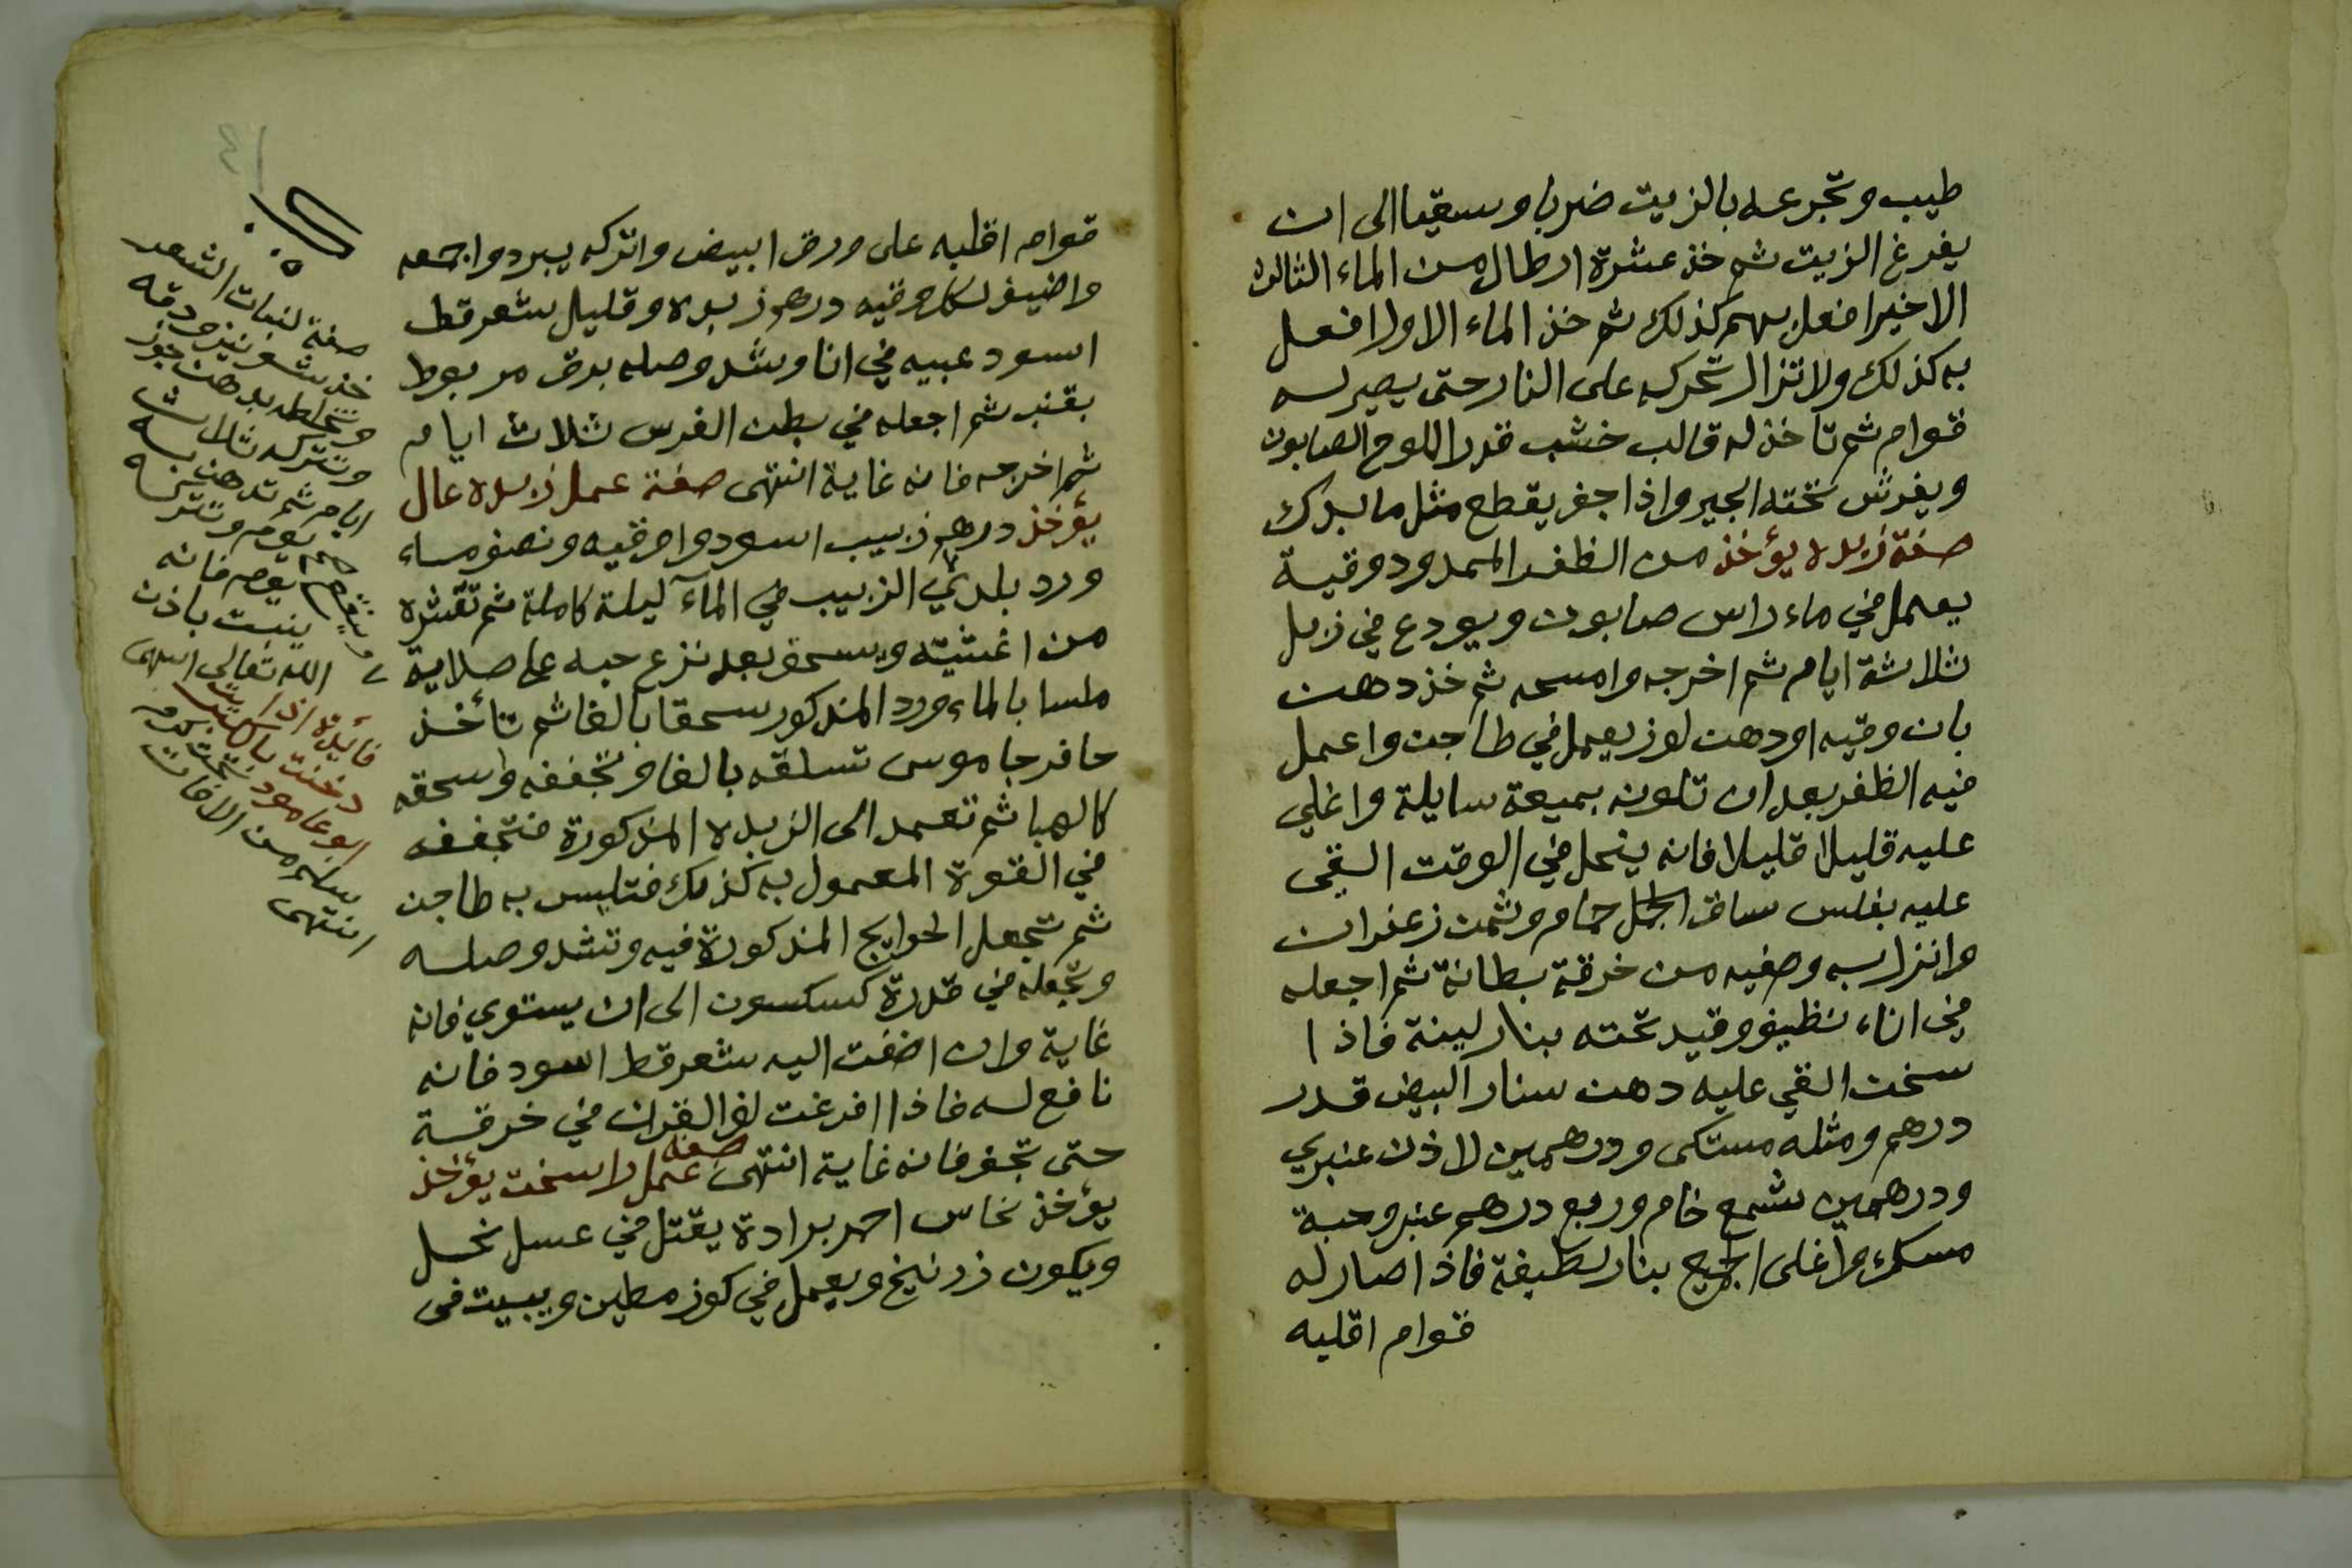 طيب وتجرعه بالزيت ضربا وسقيا الى ان
يفرغ الزيت ثم خذ عشرة ارطال من الماء الثالث
الاخير افعل بهم كذلك ثم خذ الماء الاول افعل
به كذلك ولا تزال تحركه على النار حتى يصير له
قوام ثم تاخذ له قالب خشب قدر اللوح الصابون
ويفرش تحته الجير واذا جف يقطع مثل ما بدك
صفة زبده يؤخذ من الظفر الممدود وقية
يعمل في ماء راس صابون ويودع في زبل
ثلاثة ايام ثم اخرجه وامسحه ثم خذ دهن
بان وقيه او دهن لوز يعمل في طاجن واعمل
فيه الظفر بعد ان تلونه بميعة سايلة واغلي
عليه قليلا قليلا فانه ينحل في الوقت القي
عليه بفلس ساق الجمل حمام وثمن زعفران
وانزل به وصفيه من خرقة بطانة ثم اجعله
في اناء نظيف وقيد تحته بنار لينة فاذا
سخن القي عليه دهن سنار البيض قدر
درهم ومثله مستكى ودرهمين لاذن عنبري
ودرهمين شمع خام وربع درهم عنبر وحبة
مسك واغلى الجميع بنار لطيفة فاذا صار له
قوام اقلبه
قوام اقلبه على ورق ابيض واتركه يبرد واجمعه
واضيف لكل وقيه درهم زبده وقليل شعر قط
اسود عبيه في انا وشد وصله بورق مربوط
بقنب ثم اجعله في بطن الفرس ثلاث ايام
ثم اخرجه فانه غاية انتهى صفة عمل زبده عال
يؤخذ درهم زبيب اسود واوقيه ونصف ماء
ورد بلدي الزبيب في الماء ليلة كاملة ثم تقشره
من اغشيته ويسحق بعد نزع حبه على صلاية
ملسا بالماء ورد المذكور سحقا بالغا ثم تأخذ
حافر جاموس تسلقه بالغا وتجففه واسحقه
كالهبا ثم تعمد الى الزبده المذكورة فتجففه
في القوة المعمول به كذلك فتلبس به طاجن
ثم تجعل الحوايج المذكورة فيه وتشد وصله
وتجعله في قدرة كسكسون الى ان يستوي فانه
غاية وان اضفت اليه شعر قط اسود فانه
نافع له فاذا افرغت لف القران في خرقة
حتى تجف فانه غاية انتهى صفة عمل راسخت يؤخذ
يؤخذ نحاس احمر برادة يقتل في عسل نحل
ويكون زرنيخ ويعمل في كوز مطين ويبيت في
صفة لنبات الشعر
خذ شونيز ودقه
وتخلطه بدهن جوز
وتتركه ثلاث
ايام ثم تدهن به
يوم وتتركه
يوم فانه
ينبت باذن
الله تعالى انتهى
فائدة اذا
دخنت
ابو عامود تحت كرمه
سلم من الافات
انتهى